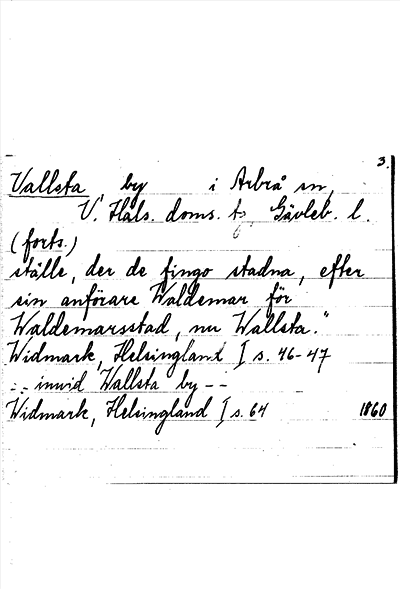 3.
Vallsta, by i Arbrå sn,
V. Häls. doms. tg, Gävleb. l.
(forts.)
ställe, der de fingo stadna, efter
sin anförare Waldemar för
Waldemarsstad, nu Wallsta."
Widmark, Helsingland I s. 46-47
-- inwid Wallsta by --
Widmark, Helsingland I s. 64 1860